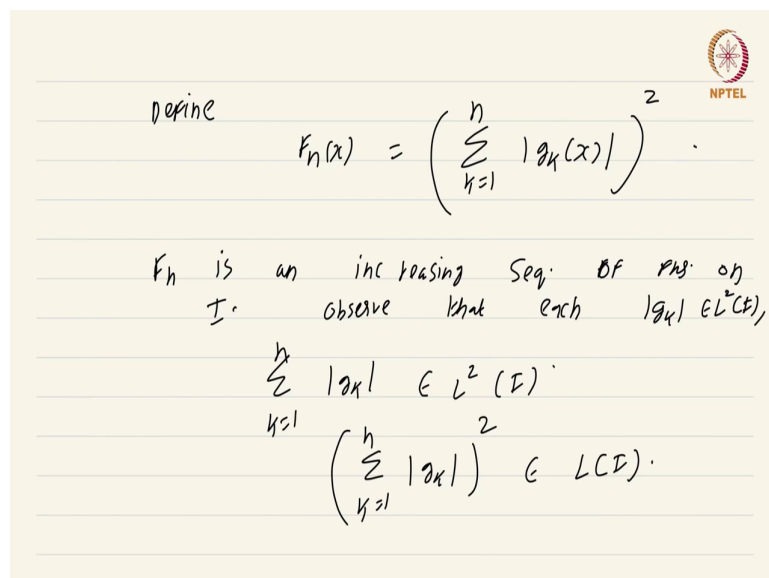 NPTEL
Define
Fn(x) = ( n Σ k=1 |gk(x)| )^2 .
Fn is an increasing Seq. OF Fns. on
I. Observe that each |gk| ∈ L^2(I),
n Σ k=1 |gk| ∈ L^2 (I).
( n Σ k=1 |gk| )^2 ∈ L(I).